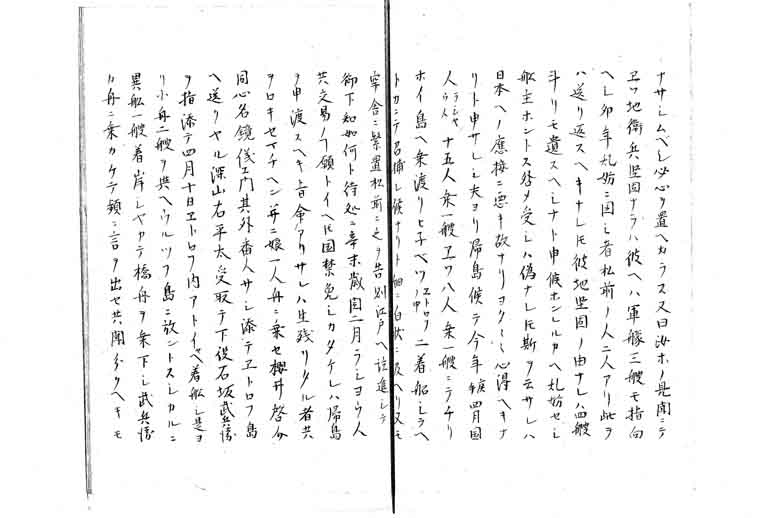 ナサシムベシ必心ヲ置ヘカラス又曰汝ホノ見聞ニテ
ヱツ地衛兵堅固ナラハ彼ヘハ軍艦三艘モ指向
ヘシ卯年乱妨ニ因シ者松前ノ人二人アリ此ヲ
ハ送リ返スヘキナレ𪜈彼地堅固ノ由ナレハ四艘
斗リモ遣スヘシナト申候ホンレルカヘ乱妨セシ
船主ホントス咎メ受シハ偽ナレ𪜈斯ヲ云サレハ
日本ヘノ應接ニ悪キ故ナリヨクヽヽ心得ヘキナ
リト申サレシ夫ヨリ帰島候テ今年四月国
人十五人乗一艘ヱツ八人乗一艘ニテチリ
ホイ島ヘ乗渡リモ子ベツニ着船シラヘ
トカニテ召捕レ候ナリト細ニ白状ニ及ヘリ又モ
牢舎ニ繋置松前ニ之ヲ告別江戸ヘ注進シテ
御下知如何ト待処ニ辛未歳閏二月ヲシヨウ人
共交易ノ願トイヘ𪜈国禁免シカタケレハ帰島
ヲ申渡スヘキ旨命アリサレハ生残リタル者共
ヲロキセイチヘン并ニ娘一人舟ニ乗セ櫻井啓介
同心名鏡儀ヱ門其外番人サシ添テヱトロフ島
ヘ送リヤル深山右平太受取テ下役石坂武兵衛
ヲ指添テ四月十日ヱトロフ内アトイヤヘ着船シ是ヨ
リ小舟二艘ヲ共ヘウルツフ島ニ放ントスシカルニ
異船一艘着岸シヤカテ橋舟ヲ乗下シ武兵衛
カ舟ニ乗カケテ頻ニ言ヲ出セ共聞分クヘキモ